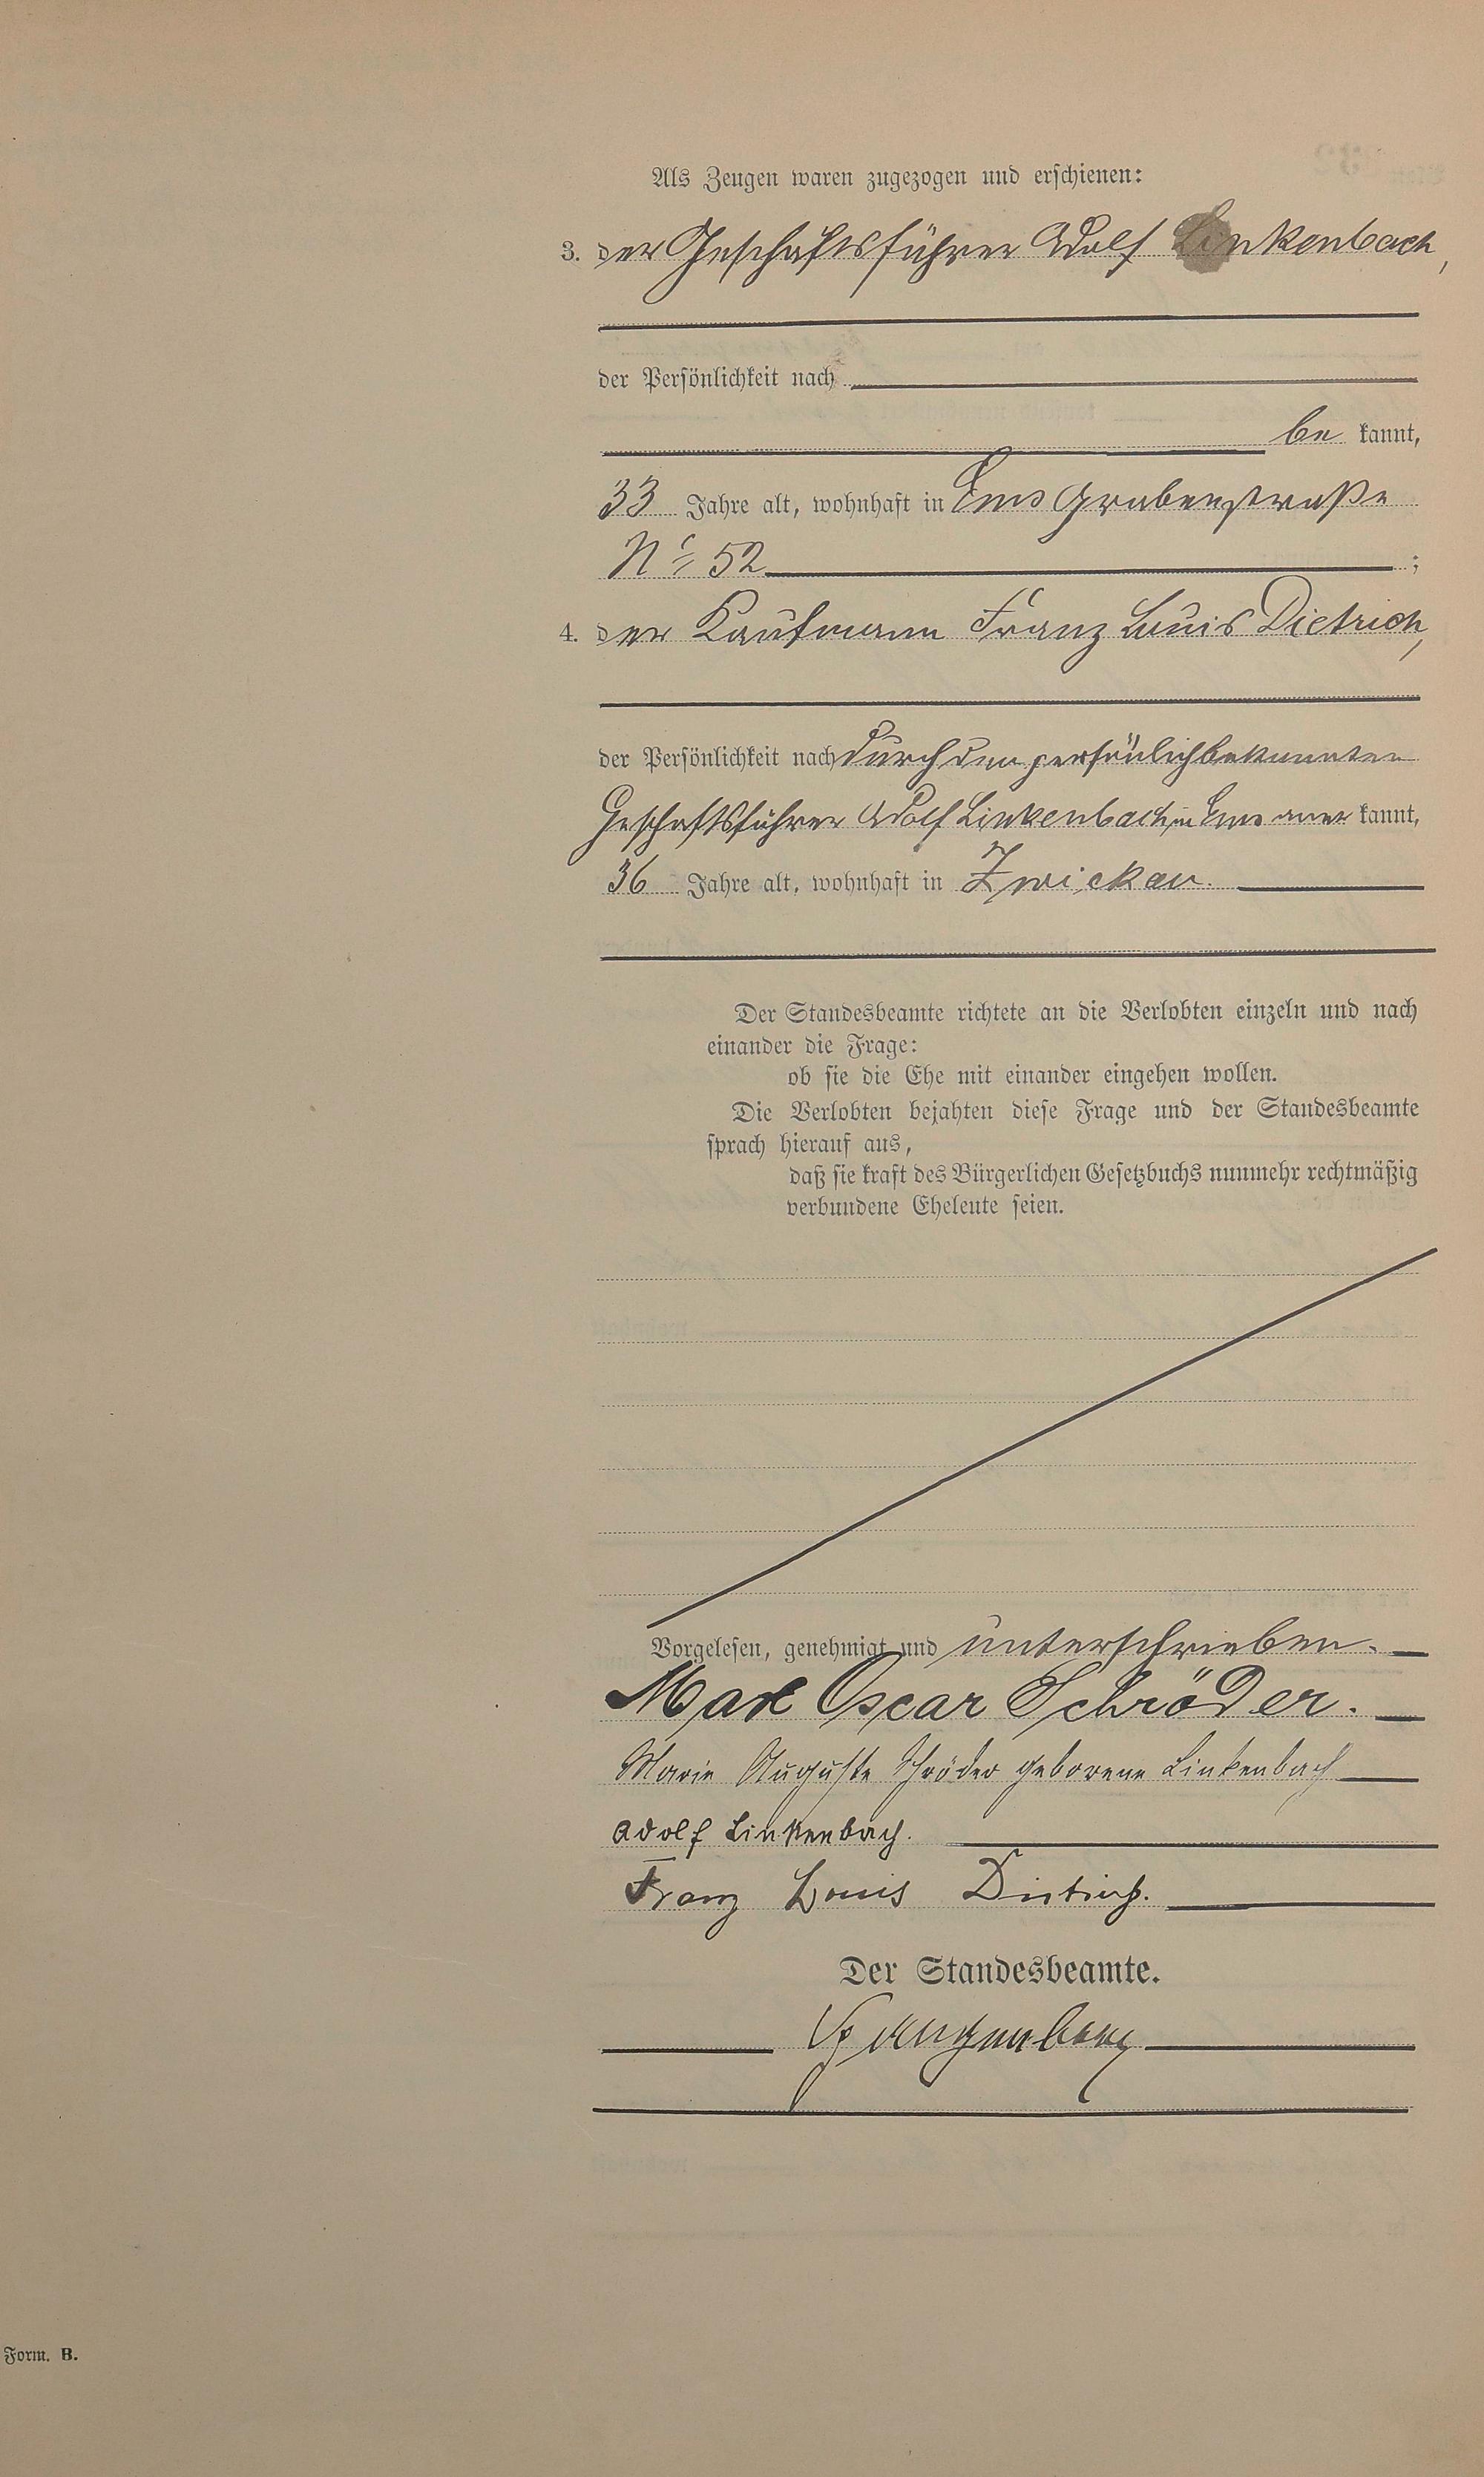 Als Zeugen waren zugezogen und erschienen:
3. der Geschäftsführer Adolf Linkenbach,
der Persönlichkeit nach
be kannt,
33 Jahre alt, wohnhaft in Ems Grabenstraße
No 52 ;
4. der Kaufmann Franz Louis Dietrich,
der Persönlichkeit nach durch den persönlich bekannten
Geschäftsführer Adolf Linkenbach in Ems aner kannt,
36 Jahre alt, wohnhaft in Zwickau.
Der Standesbeamte richtete an die Verlobten einzeln und nach
einander die Frage:
ob sie die Ehe mit einander eingehen wollen.
Die Verlobten bejahten diese Frage und der Standesbeamte
sprach hierauf aus,
daß sie kraft des Bürgerlichen Gesetzbuchs nunmehr rechtmäßig
verbundene Eheleute seien.
Vorgelesen, genehmigt und unterschrieben.
Max Oscar Schröder.
Marie Auguste Schröder geborene Linkenbach
Adolf Linkenbach.
Franz Louis Dietrich.
Der Standesbeamte.
Form. B.